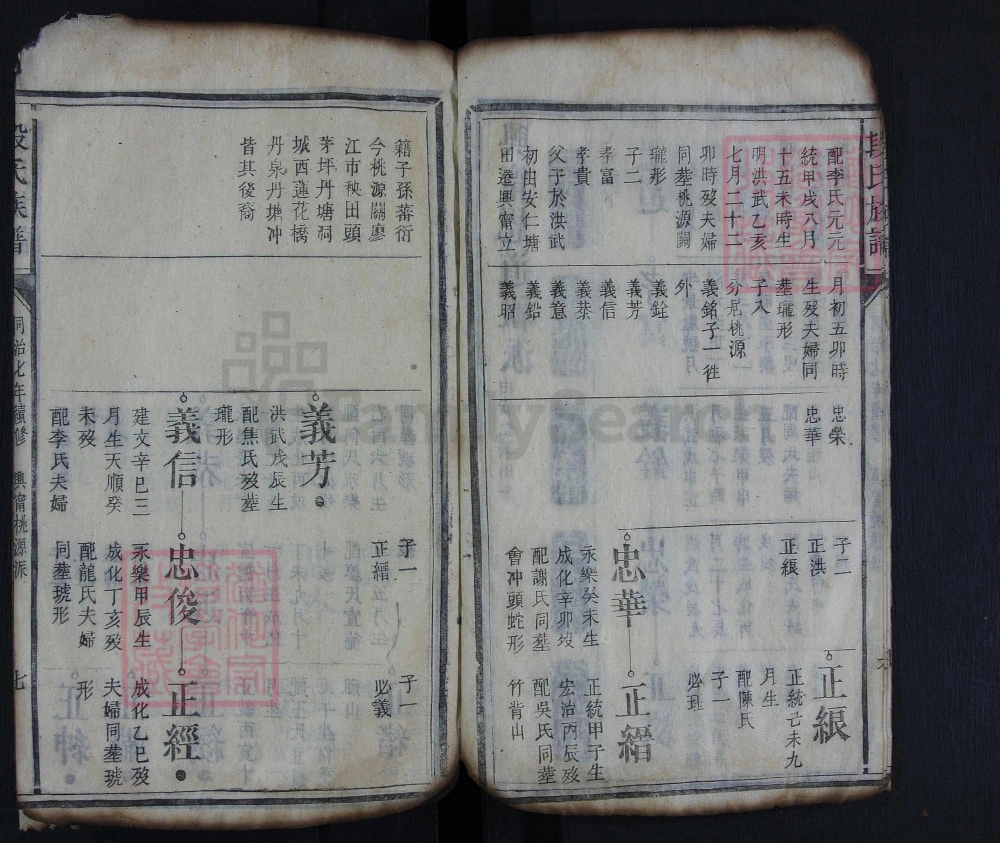 段氏族譜
配李氏元元
統甲戌八月
十五未時生
明洪武乙亥
七月二十二
卯時歿夫婦
同塟桃源關
瓏形
子二
孝富
孝貴
父子於洪武
初由安仁塘
田遷興甯立
月初五卯時
生歿夫婦同
塟瓏形
子入
分居桃源
義銘子一徃
外
義銓
義芳
義信
義榮
義意
義鉛
義昭
忠榮
忠華
子二
正洪
正㫰
正㫰
正統己未九
月生
配陳氏
子一
必珏
忠華
永樂癸未生
成化辛卯歿
配謝氏同塟
會沖頭蛇形
正縉
正統甲子生
宏治丙辰歿
配吳氏同塟
竹背山
籍子孫蕃衍
今桃源關廖
江市秧田頭
茅坪丹塘洞
城西蓮花橋
丹泉丹塘冲
皆其後裔
義芳
洪武戊辰生
配焦氏歿塟
瓏形
子一
正縉
子一
必義
義信
建文辛巳三
月生天順癸
未歿
配李氏夫婦
同塟琥形
忠俊
永樂甲辰生
成化丁亥歿
配龍氏夫婦
同塟琥形
正經
成化乙巳歿
夫婦同塟琥
形
段氏族譜
同治七年續修
興甯桃源派
七